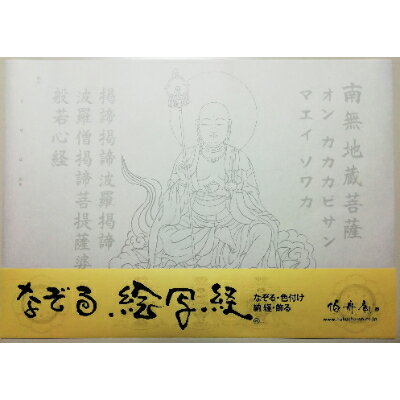 南無地蔵菩薩
オン カカカビサン
マエイ ソワカ
掲諦掲諦波羅掲諦
波羅僧掲諦菩提薩婆
般若心経
なぞる 絵写経
なぞる・色付け
納経・飾る